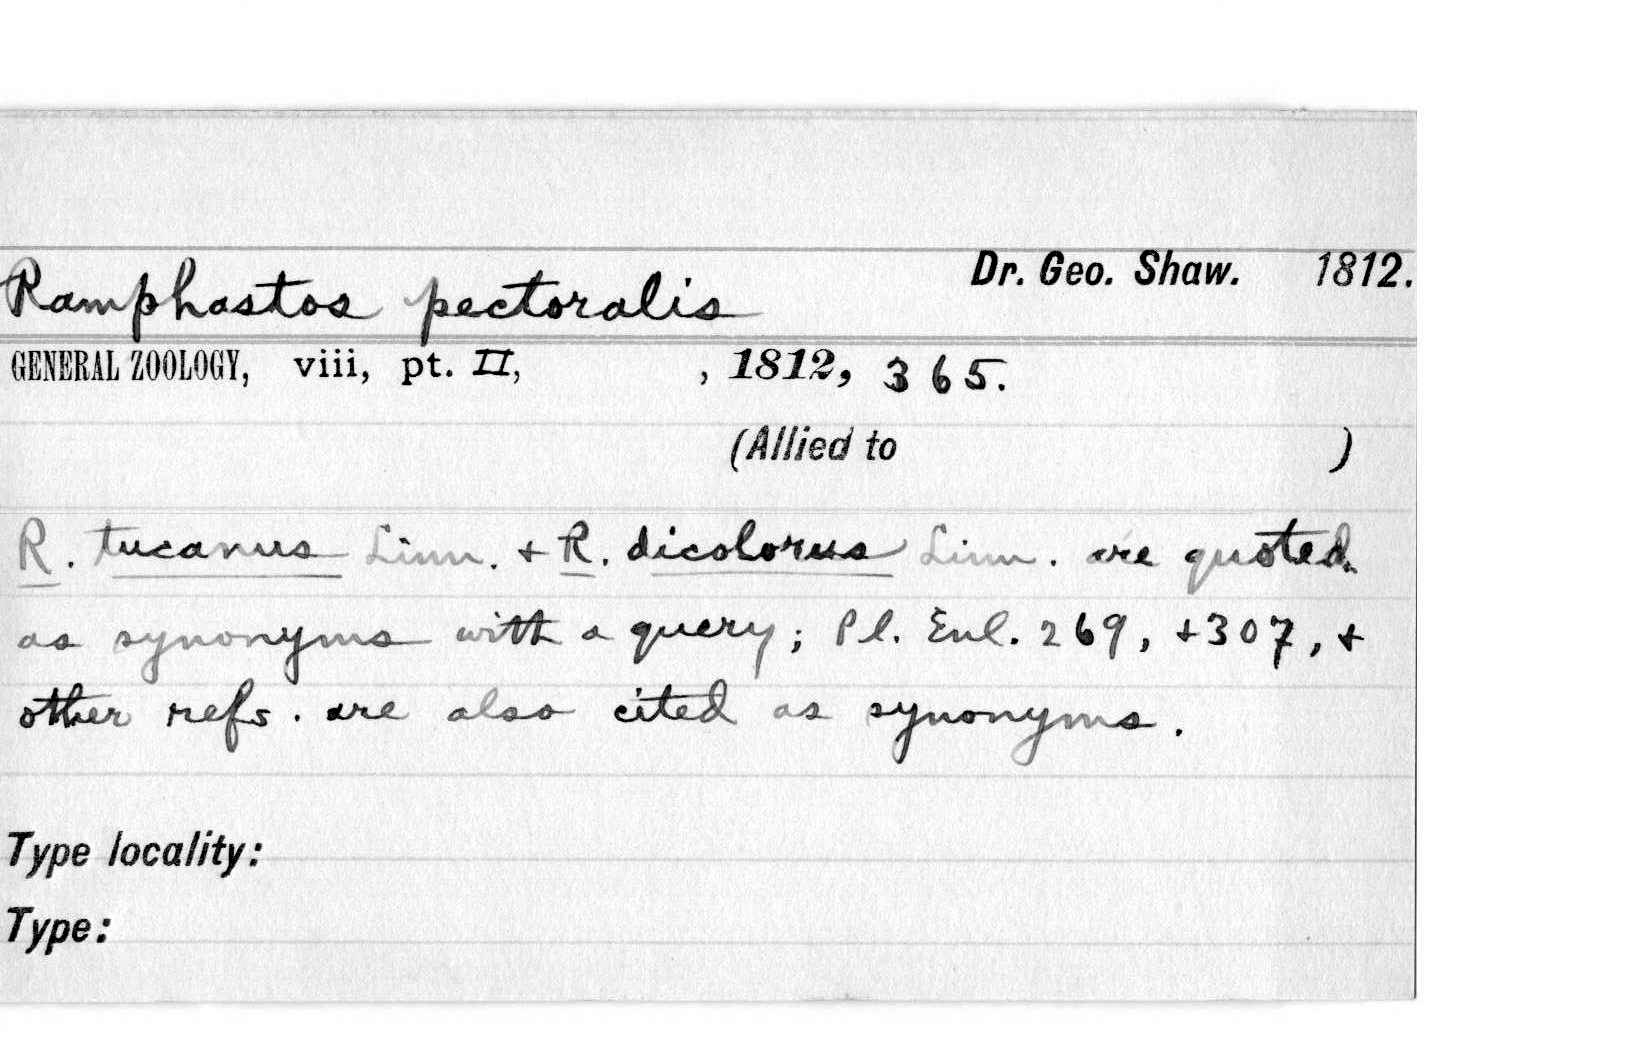 Dr. Geo. Shaw. 1812.
Ramphastos pectoralis
GENERAL ZOOLOGY, viii, pt. II, , 1812, 365.
(Allied to )
R. tucanus Linn. + R. dicolorus Linn. are quoted
as synonyms with a query; Pl. Enl. 269, +307, +
other refs. are also cited as synonyms.
Type locality:
Type: